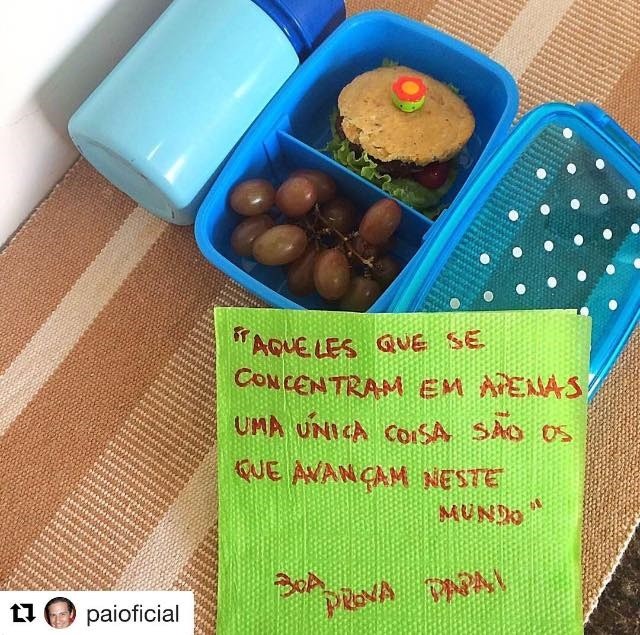 "AQUELES QUE SE
CONCENTRAM EM APENAS
UMA ÚNICA COISA SÃO OS
QUE AVANÇAM NESTE
MUNDO"
BOA
PROVA PAPAI
paioficial